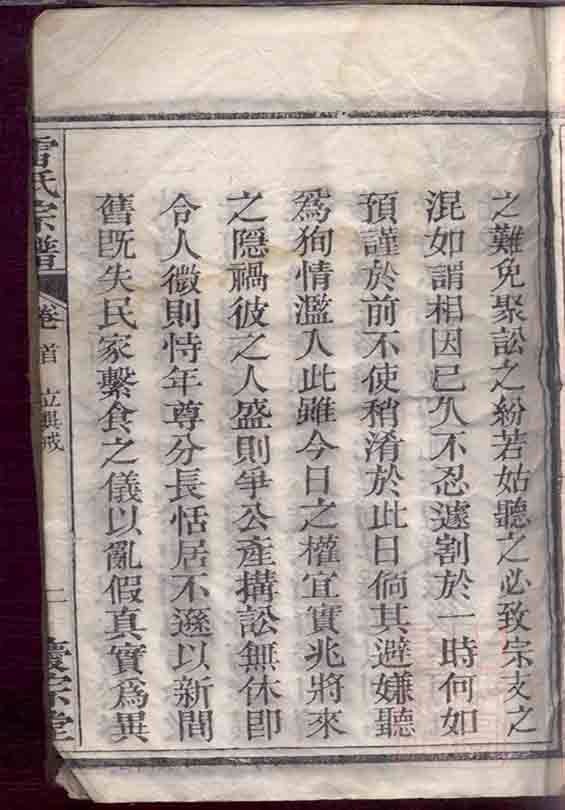 之難免聚訟之紛若姑聽之必致宗支之
混如謂相因已久不忍遽割於一時何如
預謹於前不使稍淆於此日倘其避嫌聽
爲狥情濫入此雖今日之權宜實兆將來
之隱禍彼之人盛則爭公產搆訟無休即
令人微則恃年尊分長恬居不遜以新間
舊既失民家繫食之儀以亂假真實爲異
雷氏宗譜
卷首 立異戒
一
慶宗堂